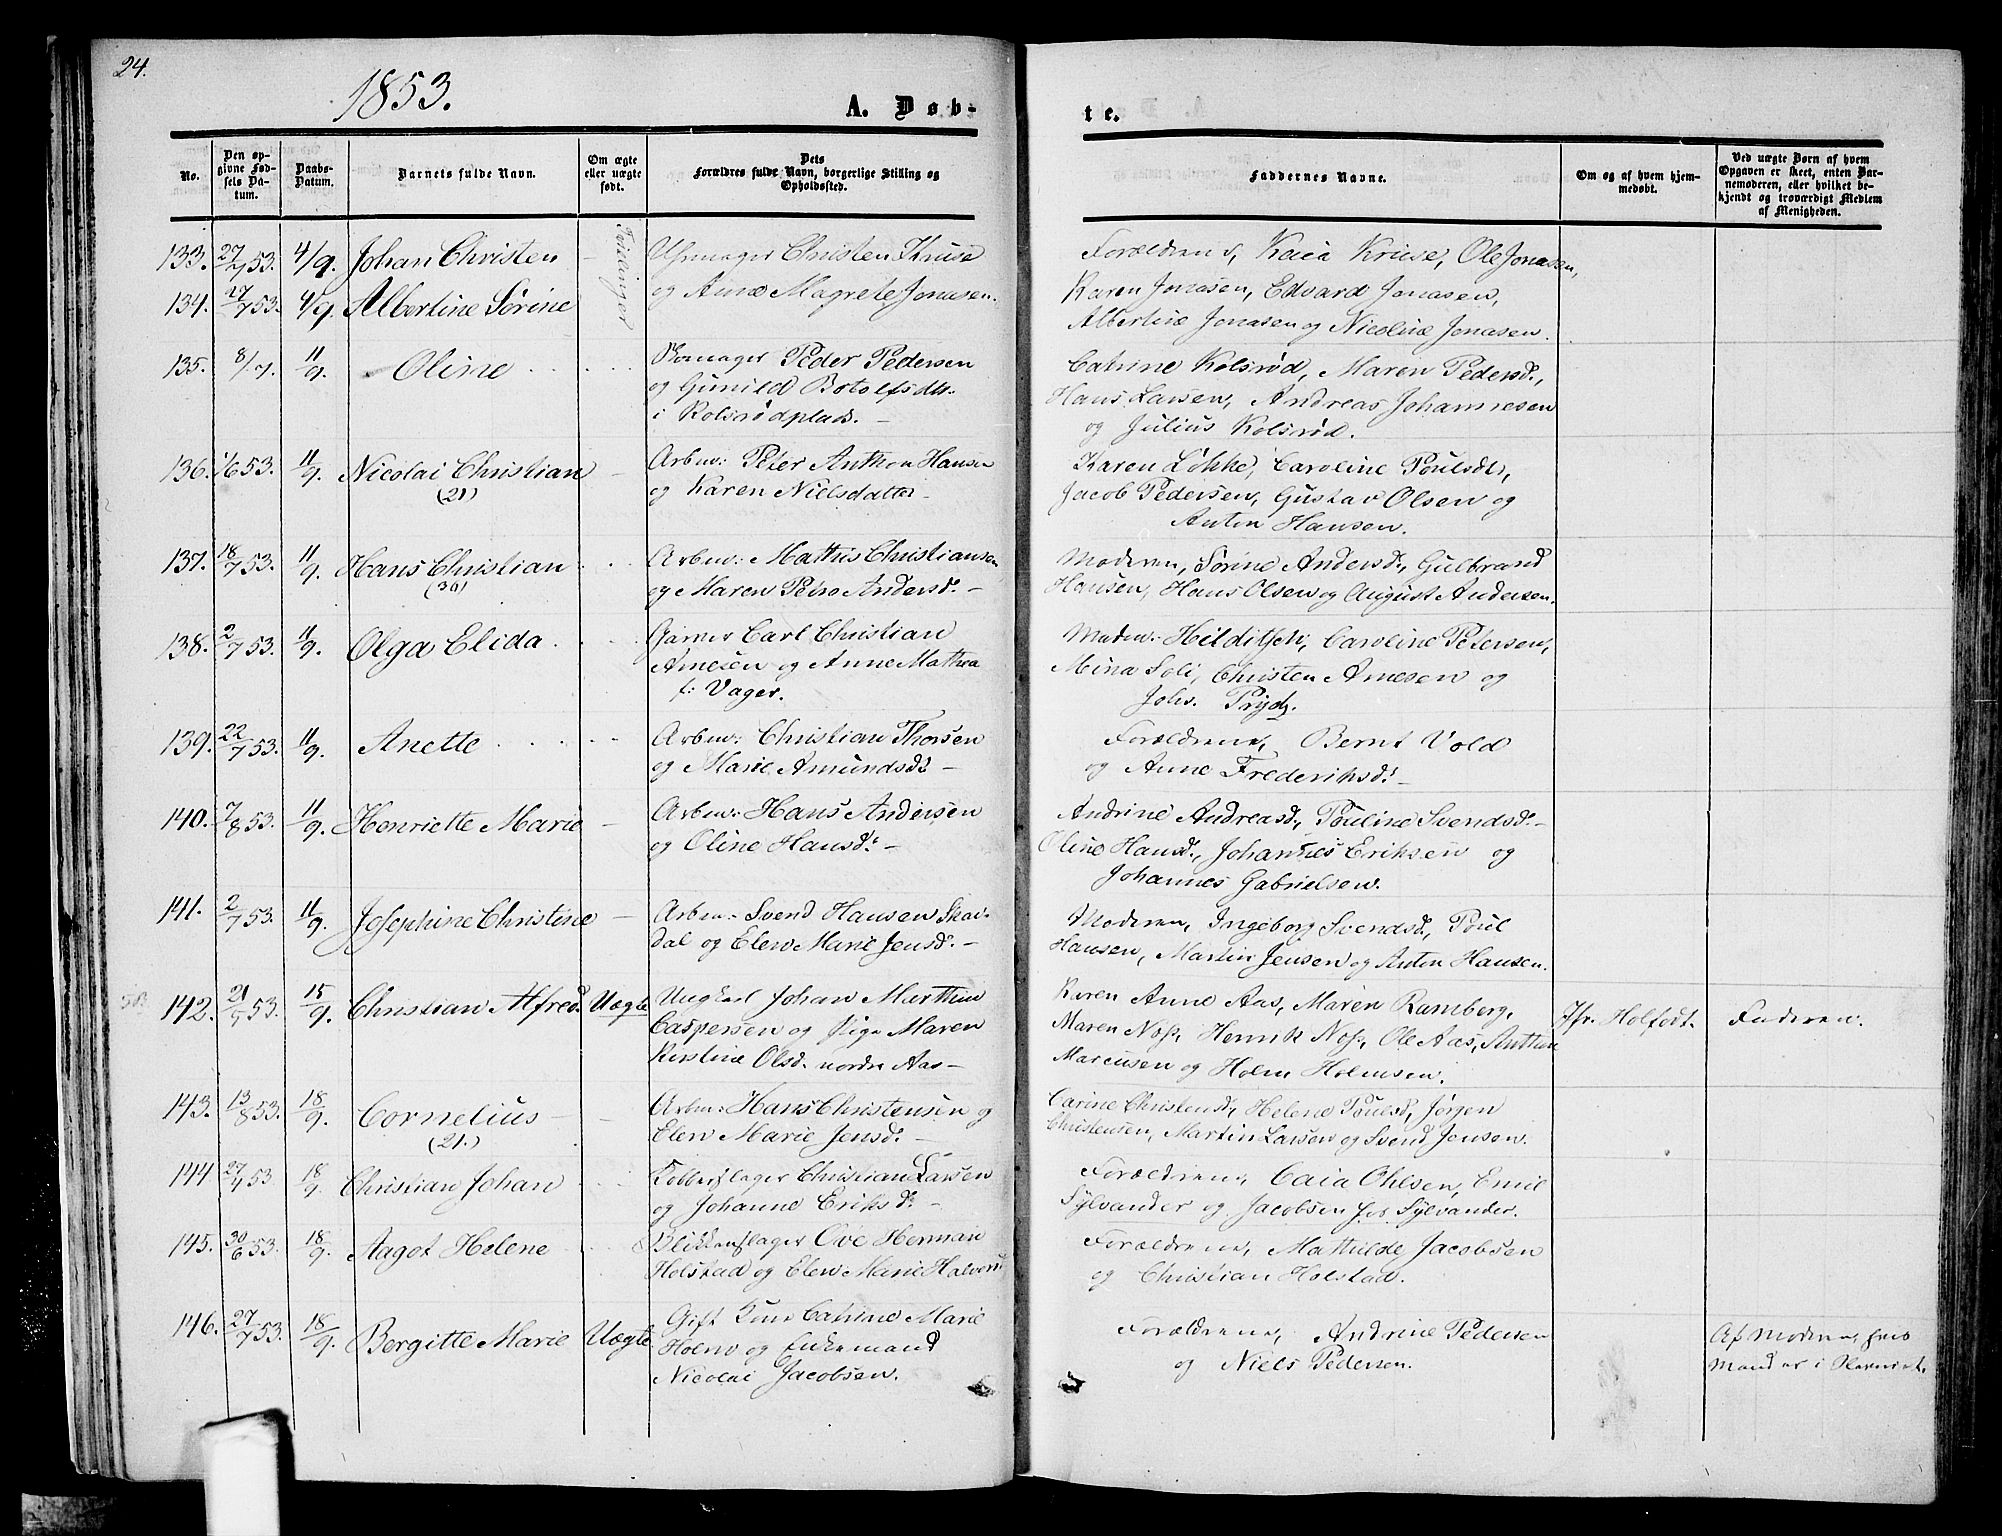 24.
1853.
A. Døb-
te.
No.
Den op-
givne Fød-
sels Da-
tum.
Daabs-
Datum.
Barnets fulde Navn.
Om ægte
eller uægte
født.
Dets
Forældres fulde Navn, borgerlige Stilling og
Opholdssted.
Faddernes Navne.
Om og af hvem hjem-
medøbt.
Ved uægte Børn af hvem
Opgaven er skeet, enten Bar-
nemoderen, eller hvilket be-
kjendt og troværdigt Medlem
af Menigheden.
133. 27/7 53. 4/9. Johan Christen - Uhrmager Christen Kruse
Tvillinger
Forældrene, Kaia Kruse, Ole Jonasen,
134. 27/7 53. 4/9 Albertine Sørine og Anne Magrete Jonasen.
Karen Jonasen, Edvard Jonasen,
Albertine Jonasen og Nicoline Jonasen.
135. 8/7. 11/9. Oline Peder Pedersen
og Gunild Botolfsdtr.
i Kolsrødplads. -
Catrine Kolsrød, Maren Pedersd.,
Hans Larsen, Andreas Johannesen
og Julius Kolsrød.
136. 1/6 53. 11/9. Nicolai Christian - Arbm: Peter Anthon Hansen
(21)
og Karen Nielsdatter -
Karen Løkke, Caroline Poulsdt,
Jacob Pedersen, Gustav Olsen og
Anton Hansen.
137. 18/7 53. 11/9. Hans Christian Arbm: Mathis Christiansen
(30)
og Maren Petrea Andersd. -
Moderen, Sørine Andersd., Gulbrand
Hansen, Hans Olsen og August Andersen.
138. 2/7 53. 11/9. Olga Elida. Garver Carl Christian
Arnesen og Anne Mathea
f: Vager.
Madm: Hilditsch, Caroline Petersen,
Mina Soli, Christen Arnesen og
Johs. Prydz.
139. 22/7 53. 11/9. Anette Arbm: Christian Thorsen
og Marie Amundsd. -
Forældrene, Bernt Vold
og Anne Frederiksd. -
140. 7/8 53. 11/9. Henriette Marie - Arbm: Hans Andersen
og Oline Hansd. -
Andrine Andreasd., Pouline Svendsd. -
Oline Hansd., Johannes Eriksen og
Johannes Gabrielsen.
141. 2/7 53. 11/9. Josephine Christine - Arbm: Svend Hansen Skav-
dal og Elen Marie Jensd. -
Moderen, Ingeborg Svendsd., Poul
Hansen, Martin Jensen og Anton Hansen.
142. 21/5 53. 15/9. Christian Alfred. Uægte Ungkarl Johan Marthin
Caspersen og Pige Maren
Kirstine Olsd. nordre Aas -
Karen Anne Aas, Maren Ramberg,
Maren Nos, Henrik Nos, Ole Aas, Anthon
Marcusen og Holm Holmsen.
Jfr. Holfodt. Faderen.
143. 13/8 53. 18/9. Cornelius - - Arbm: Hans Christensen og
(21.)
Elen Marie Jensd. -
Carine Christensd., Helene Poulsd., Jørgen
Christensen, Martin Larsen og Svend Jensen.
144 27/7 53 18/9. Christian Johan Kobberslager Christian Larsen
og Johanne Eriksd. -
Forældrene, Caia Ohlsen, Emil
Sylvander og Jacobsen for Sylvander.
145. 30/6 53. 18/9. Aagot Helene Blikkenslager Ove Herman
Holstad og Elen Marie Halvers
Forældrene, Mathilde Jacobsen
og Christian Holstad.
146. 27/7 53. 18/9. Bergitte Marie Uægte Gift Kone Catrine Marie
Holm og Enkemand
Nicolai Jacobsen.
Forældrene, Andrine Pedersen
og Niels Pedersen.
Af Moderen, hvis
Mand er i